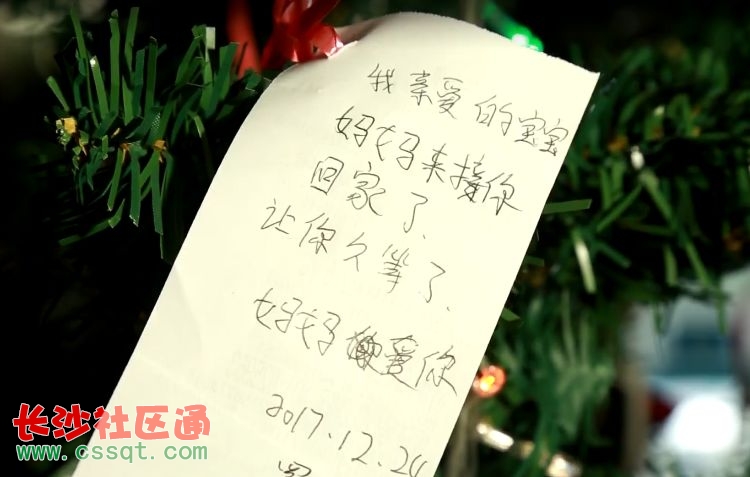 我亲爱的宝宝
妈妈来接你
回家了.
让你久等了.
妈妈爱你
2017.12.24
长沙社区通
www.cssqt.com